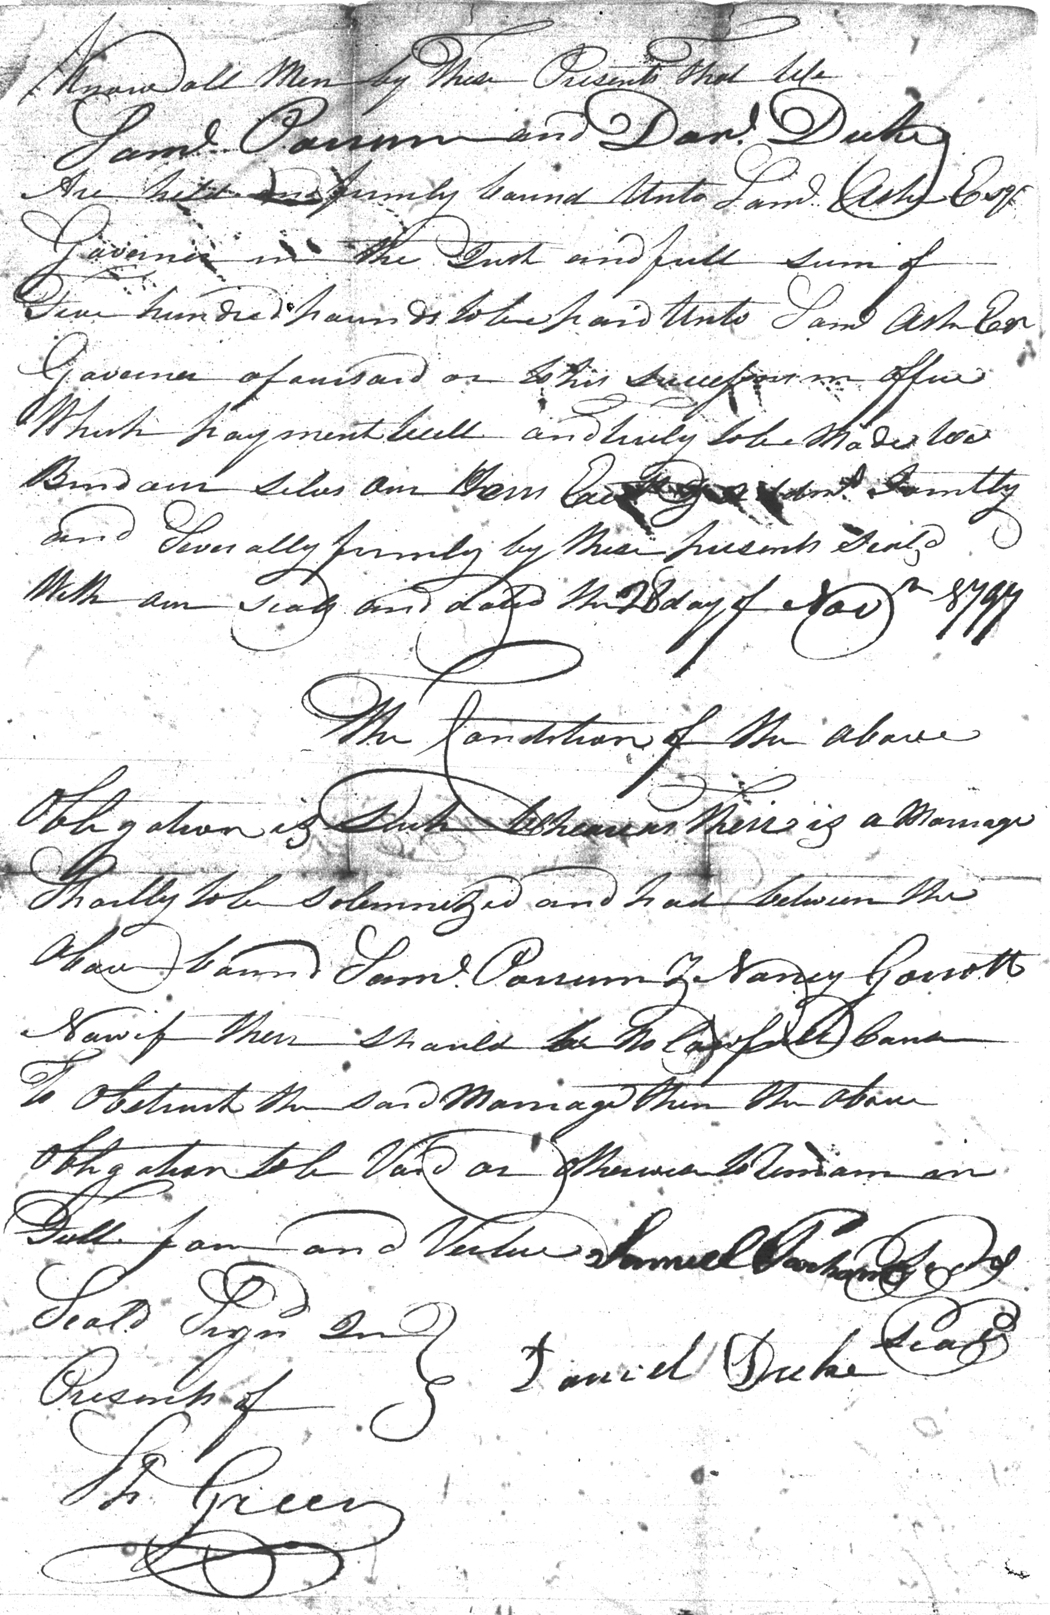 Know all Men by These Presents That We
Saml. Parrum and Danl. Duke
Are held and firmly bound Unto Saml. Ash Esqr
Governer in the Just and full sum of
Five hundred pounds to be paid Unto Saml Ash Esr
Governer aforesaid or to his successors in office
Which payment well and truly to be Made we
Bind our selves our Heirs Exe Admr. Jointly
and Severally firmly by these presents Seald
With our seals and dated the 28 day of Novr 1797
The Condition of the above
Obligation is Such Whereas There is a Marriage
Shortly to be solemnized and had between the
Above bound Saml. Parrum & Nancy Garrott
Now if there should be no lawfull cause
To Obstruct the said Marriage then the above
Obligation to be Void or otherwise to remain in
Full force and Vertue Samuel Parham Seal
Seald Signd In
Presents of Daniel Duke seal
Sh Green